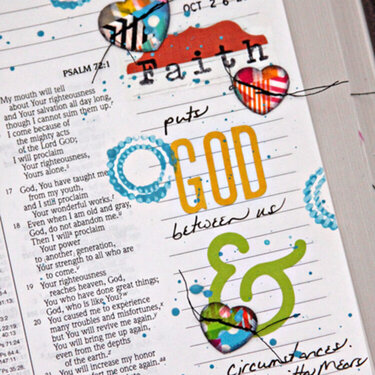 OCT 2-6-2
PSALM 72:1
My mouth will tell
about Your righteousness
and Your salvation all day long,
though I cannot sum them up.
I come because of
the mighty acts
of the Lord GOD;
I will proclaim
Your righteousness,
Yours alone.
17 God, You have taught me
from my youth,
and I still proclaim
Your wonderful works.
18 Even when I am old and gray,
God, do not abandon me.
Then I will proclaim
Your power
to another generation,
Your strength to all who are
to come.
19 Your righteousness
reaches heaven, God,
You who have done great things;
God, who is like You?
20 You caused me to experience
many troubles and misfortunes,
but You will revive me again.
You will bring me up again,
even from the depths
of the earth.
21 You will increase my honor
me once again.
Faith
puts
GOD
between us
&
circumstances